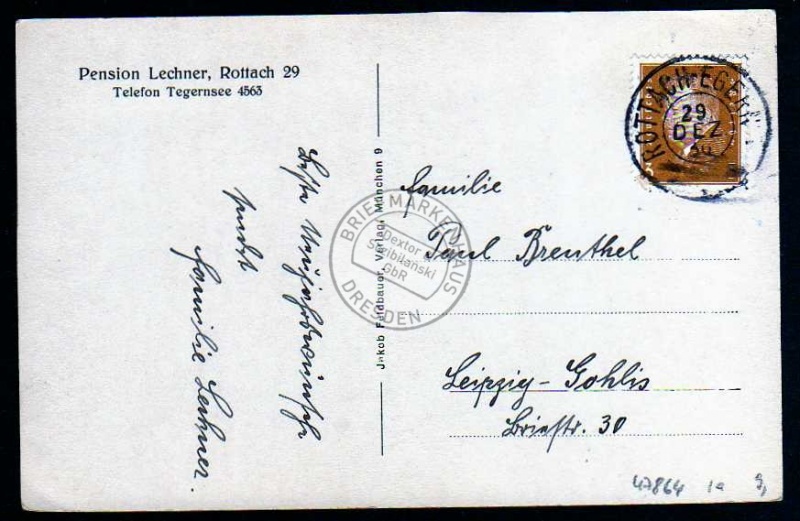 Pension Lechner, Rottach 29
Telefon Tegernsee 4563
Beste Neujahrswünsche
sendet
Familie Lechner.
Jakob Feldbauer, Verlag, München 9
ROTTACH-EGERN
29
DEZ
3
Familie
Paul Brenthel
Leipzig-Gohlis
Briestr. 30
BRIEFMARKENHAUS
Dextor &
Scibilański
GbR
DRESDEN
47864 1a